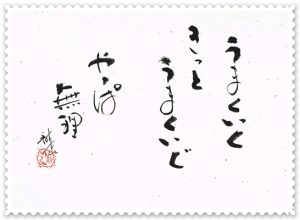 うまくいく
きっと
うまくいく
やっぱ
無理